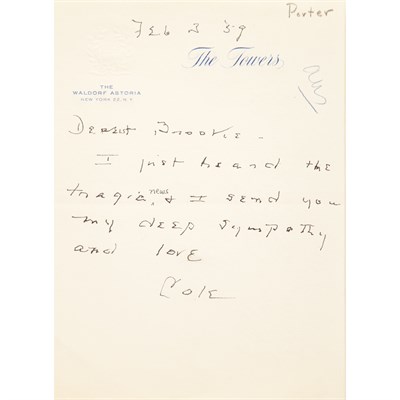 Porter
FEb 3 59
The Towers
ans
THE
WALDORF ASTORIA
NEW YORK 22, N.Y.
Dearest Brookie -
I just heard the
news
tragic, & I send you
my deep sympathy
and love
Cole